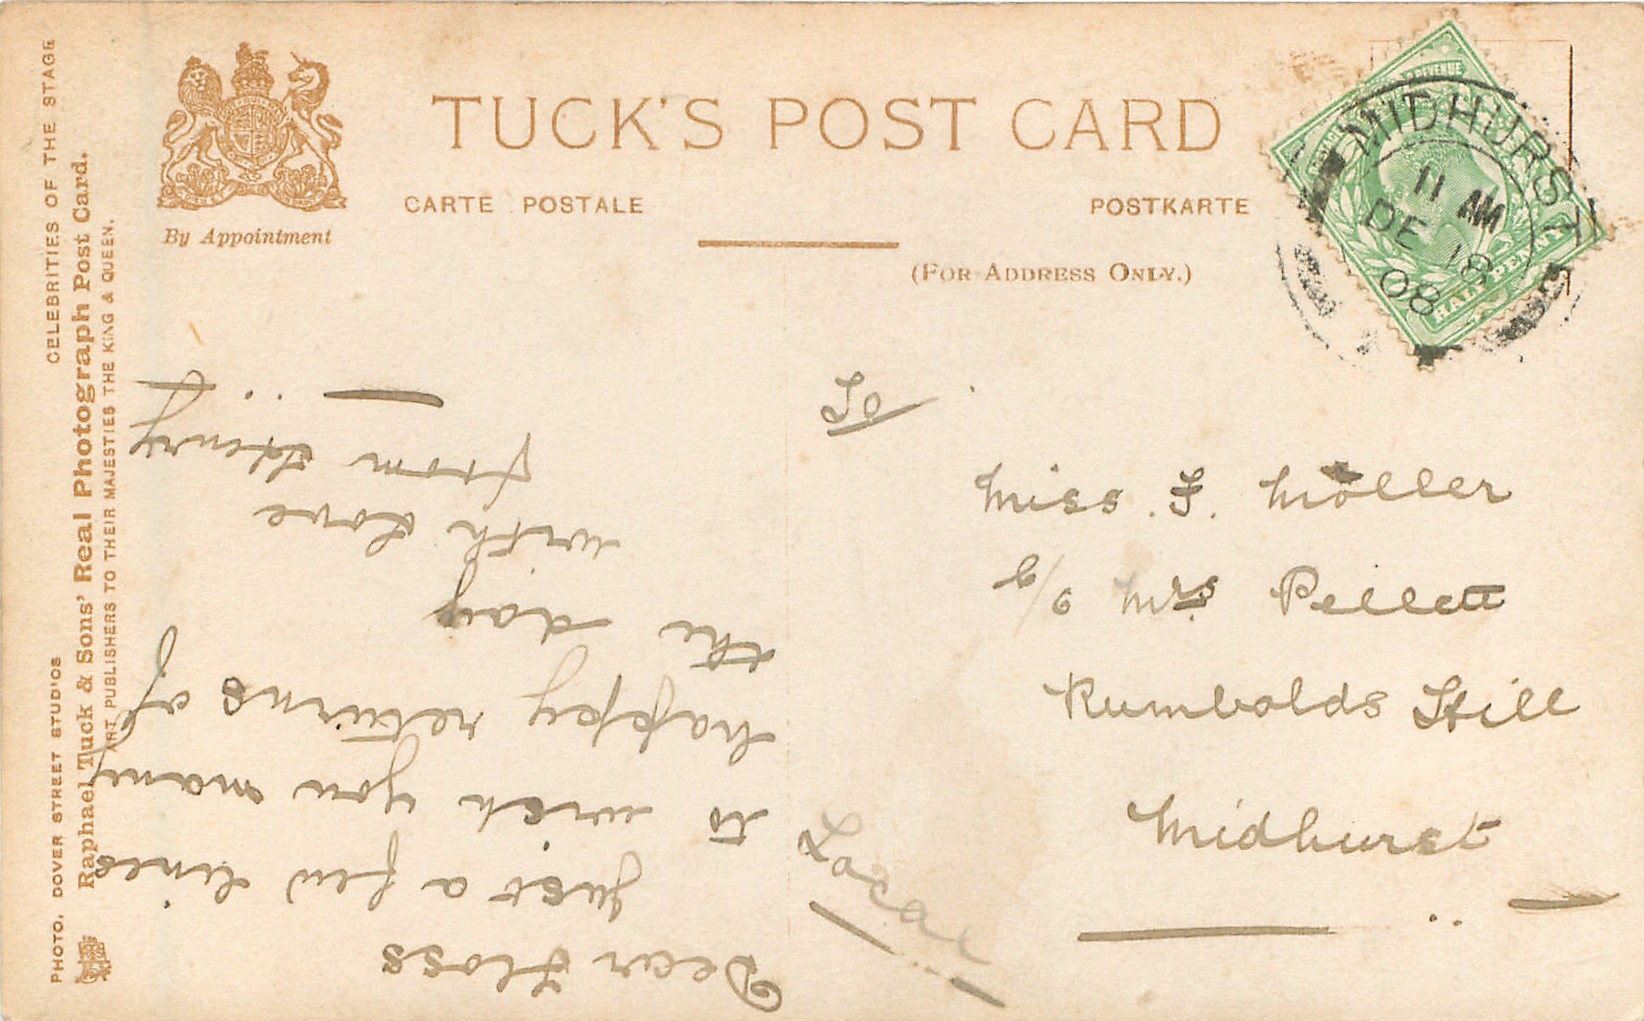 TUCK'S POST CARD
CARTE POSTALE
POSTKARTE
(FOR ADDRESS ONLY.)
By Appointment
CELEBRITIES OF THE STAGE
PHOTO. DOVER STREET STUDIOS
Raphael Tuck & Sons' Real Photograph Post Card.
ART PUBLISHERS TO THEIR MAJESTIES THE KING & QUEEN.
MIDHURST
11 AM
DE 18
08
REVENUE
HALFPENNY
To
Miss. F. Möller
c/o Mrs Pellett
Rumbolds Hill
Midhurst
Local
Dear Floss
just a few lines
to wish you many
happy returns of
the day
with Love
from Henry